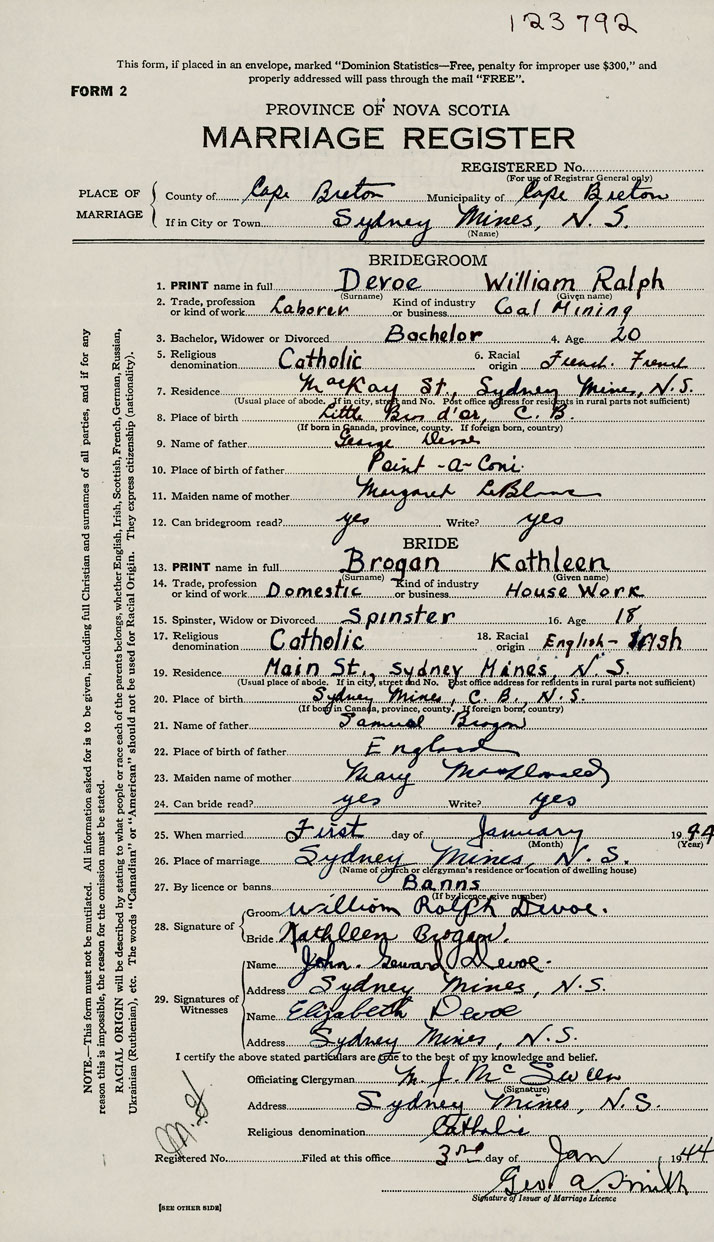 123792
This form, if placed in an envelope, marked “Dominion Statistics—Free, penalty for improper use $300,” and
properly addressed will pass through the mail “FREE”.
FORM 2
PROVINCE OF NOVA SCOTIA
MARRIAGE REGISTER
REGISTERED No.
(For use of Registrar General only)
PLACE OF MARRIAGE
County of Cape Breton Municipality of Cape Breton
If in City or Town Sydney Mines, N.S.
(Name)
BRIDEGROOM
1. PRINT name in full Devoe William Ralph
(Surname) (Given name)
2. Trade, profession or kind of work Laborer Kind of industry or business Coal Mining
3. Bachelor, Widower or Divorced Bachelor 4. Age 20
5. Religious denomination Catholic 6. Racial origin French. French
7. Residence MacKay St., Sydney Mines, N.S.
(Usual place of abode. If in city, street and No. Post office address for residents in rural parts not sufficient)
8. Place of birth Little Bras d'or, C.B.
(If born in Canada, province, county. If foreign born, country)
9. Name of father George Devoe
10. Place of birth of father Point-a-Coni
11. Maiden name of mother Margaret LeBlanc
12. Can bridegroom read? yes Write? yes
BRIDE
13. PRINT name in full Brogan Kathleen
(Surname) (Given name)
14. Trade, profession or kind of work Domestic Kind of industry or business House Work
15. Spinster, Widow or Divorced Spinster 16. Age 18
17. Religious denomination Catholic 18. Racial origin English - Irish
19. Residence Main St., Sydney Mines, N.S.
(Usual place of abode. If in city, street and No. Post office address for residents in rural parts not sufficient)
20. Place of birth Sydney Mines, C.B., N.S.
(If born in Canada, province, county. If foreign born, country)
21. Name of father Samuel Brogan
22. Place of birth of father England
23. Maiden name of mother Mary MacDonald
24. Can bride read? yes Write? yes
25. When married First day of January 1944
(Month) (Year)
26. Place of marriage Sydney Mines, N.S.
(Name of church or clergyman's residence or location of dwelling house)
27. By licence or banns Banns
(If by licence, give number)
28. Signature of
Groom William Ralph Devoe.
Bride Kathleen Brogan.
29. Signatures of Witnesses
Name John Devoe.
Address Sydney Mines, N.S.
Name Elizabeth Devoe
Address Sydney Mines, N.S.
I certify the above stated particulars are true to the best of my knowledge and belief.
Officiating Clergyman M. J. McSween
(Signature)
Address Sydney Mines, N.S.
Religious denomination Catholic
Registered No. Filed at this office 3rd day of Jan 1944
Geo. A. Smith
Signature of Issuer of Marriage Licence
[SEE OTHER SIDE]
NOTE.—This form must not be mutilated. All information asked for is to be given, including full Christian and surnames of all parties, and if for any
reason this is impossible, the reason for the omission must be stated.
RACIAL ORIGIN will be described by stating to what people or race each of the parents belongs, whether English, Irish, Scottish, French, German, Russian,
Ukrainian (Ruthenian), etc. The words “Canadian” or “American” should not be used for Racial Origin. They express citizenship (nationality).